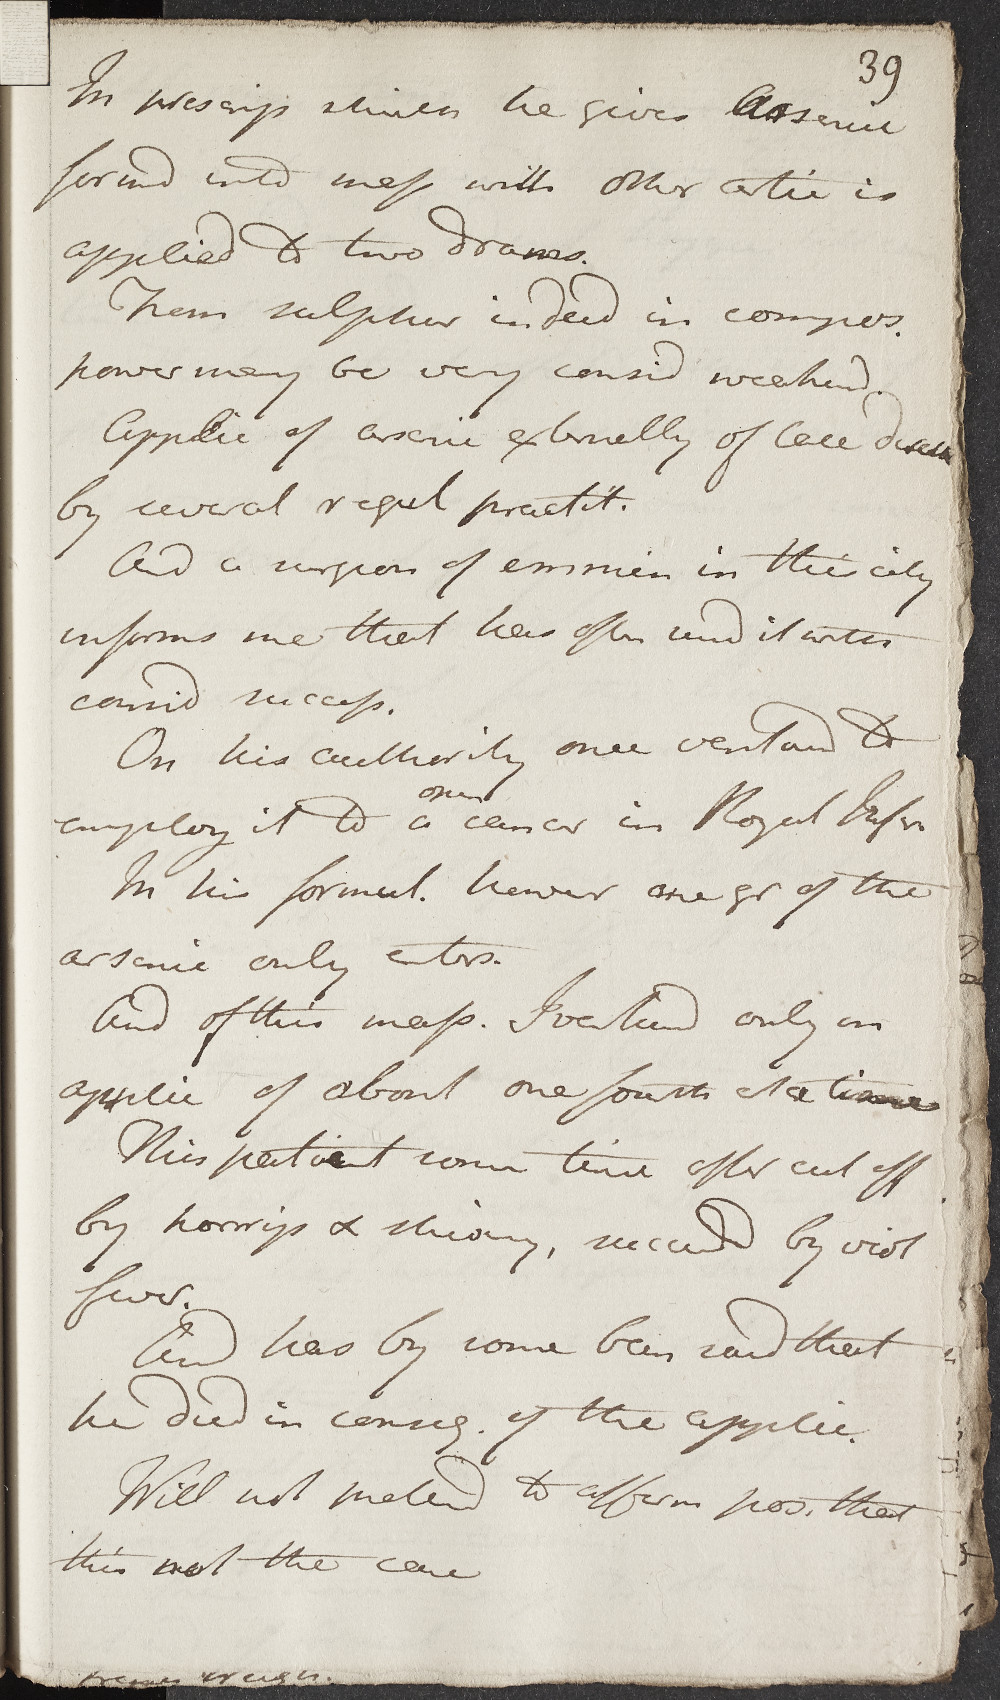 39
In prescrip which he gives Arsenic
formd into mass with other artic is
applied to two drams.
From sulphur indeed in compos.
power may be very consid weakend.
Applic of arsenic externally of late
by several regul practit.
And a surgeon of eminen in this city
informs me that has often usd it with
consid success.
On his authority once venturd to
employ it to a open cancer in Royal Infir
In his formul. howevr one gr of the
arsenic only enters.
And of this mass. I venturd only on
applic of about one fourth at a time
This patient some time after cut off
by horrip & shivering, succeedd by viol
fever.
And has by some been said that
he died in conseq. of the applic.
Will not pretend to affirm pos. that
this not the case